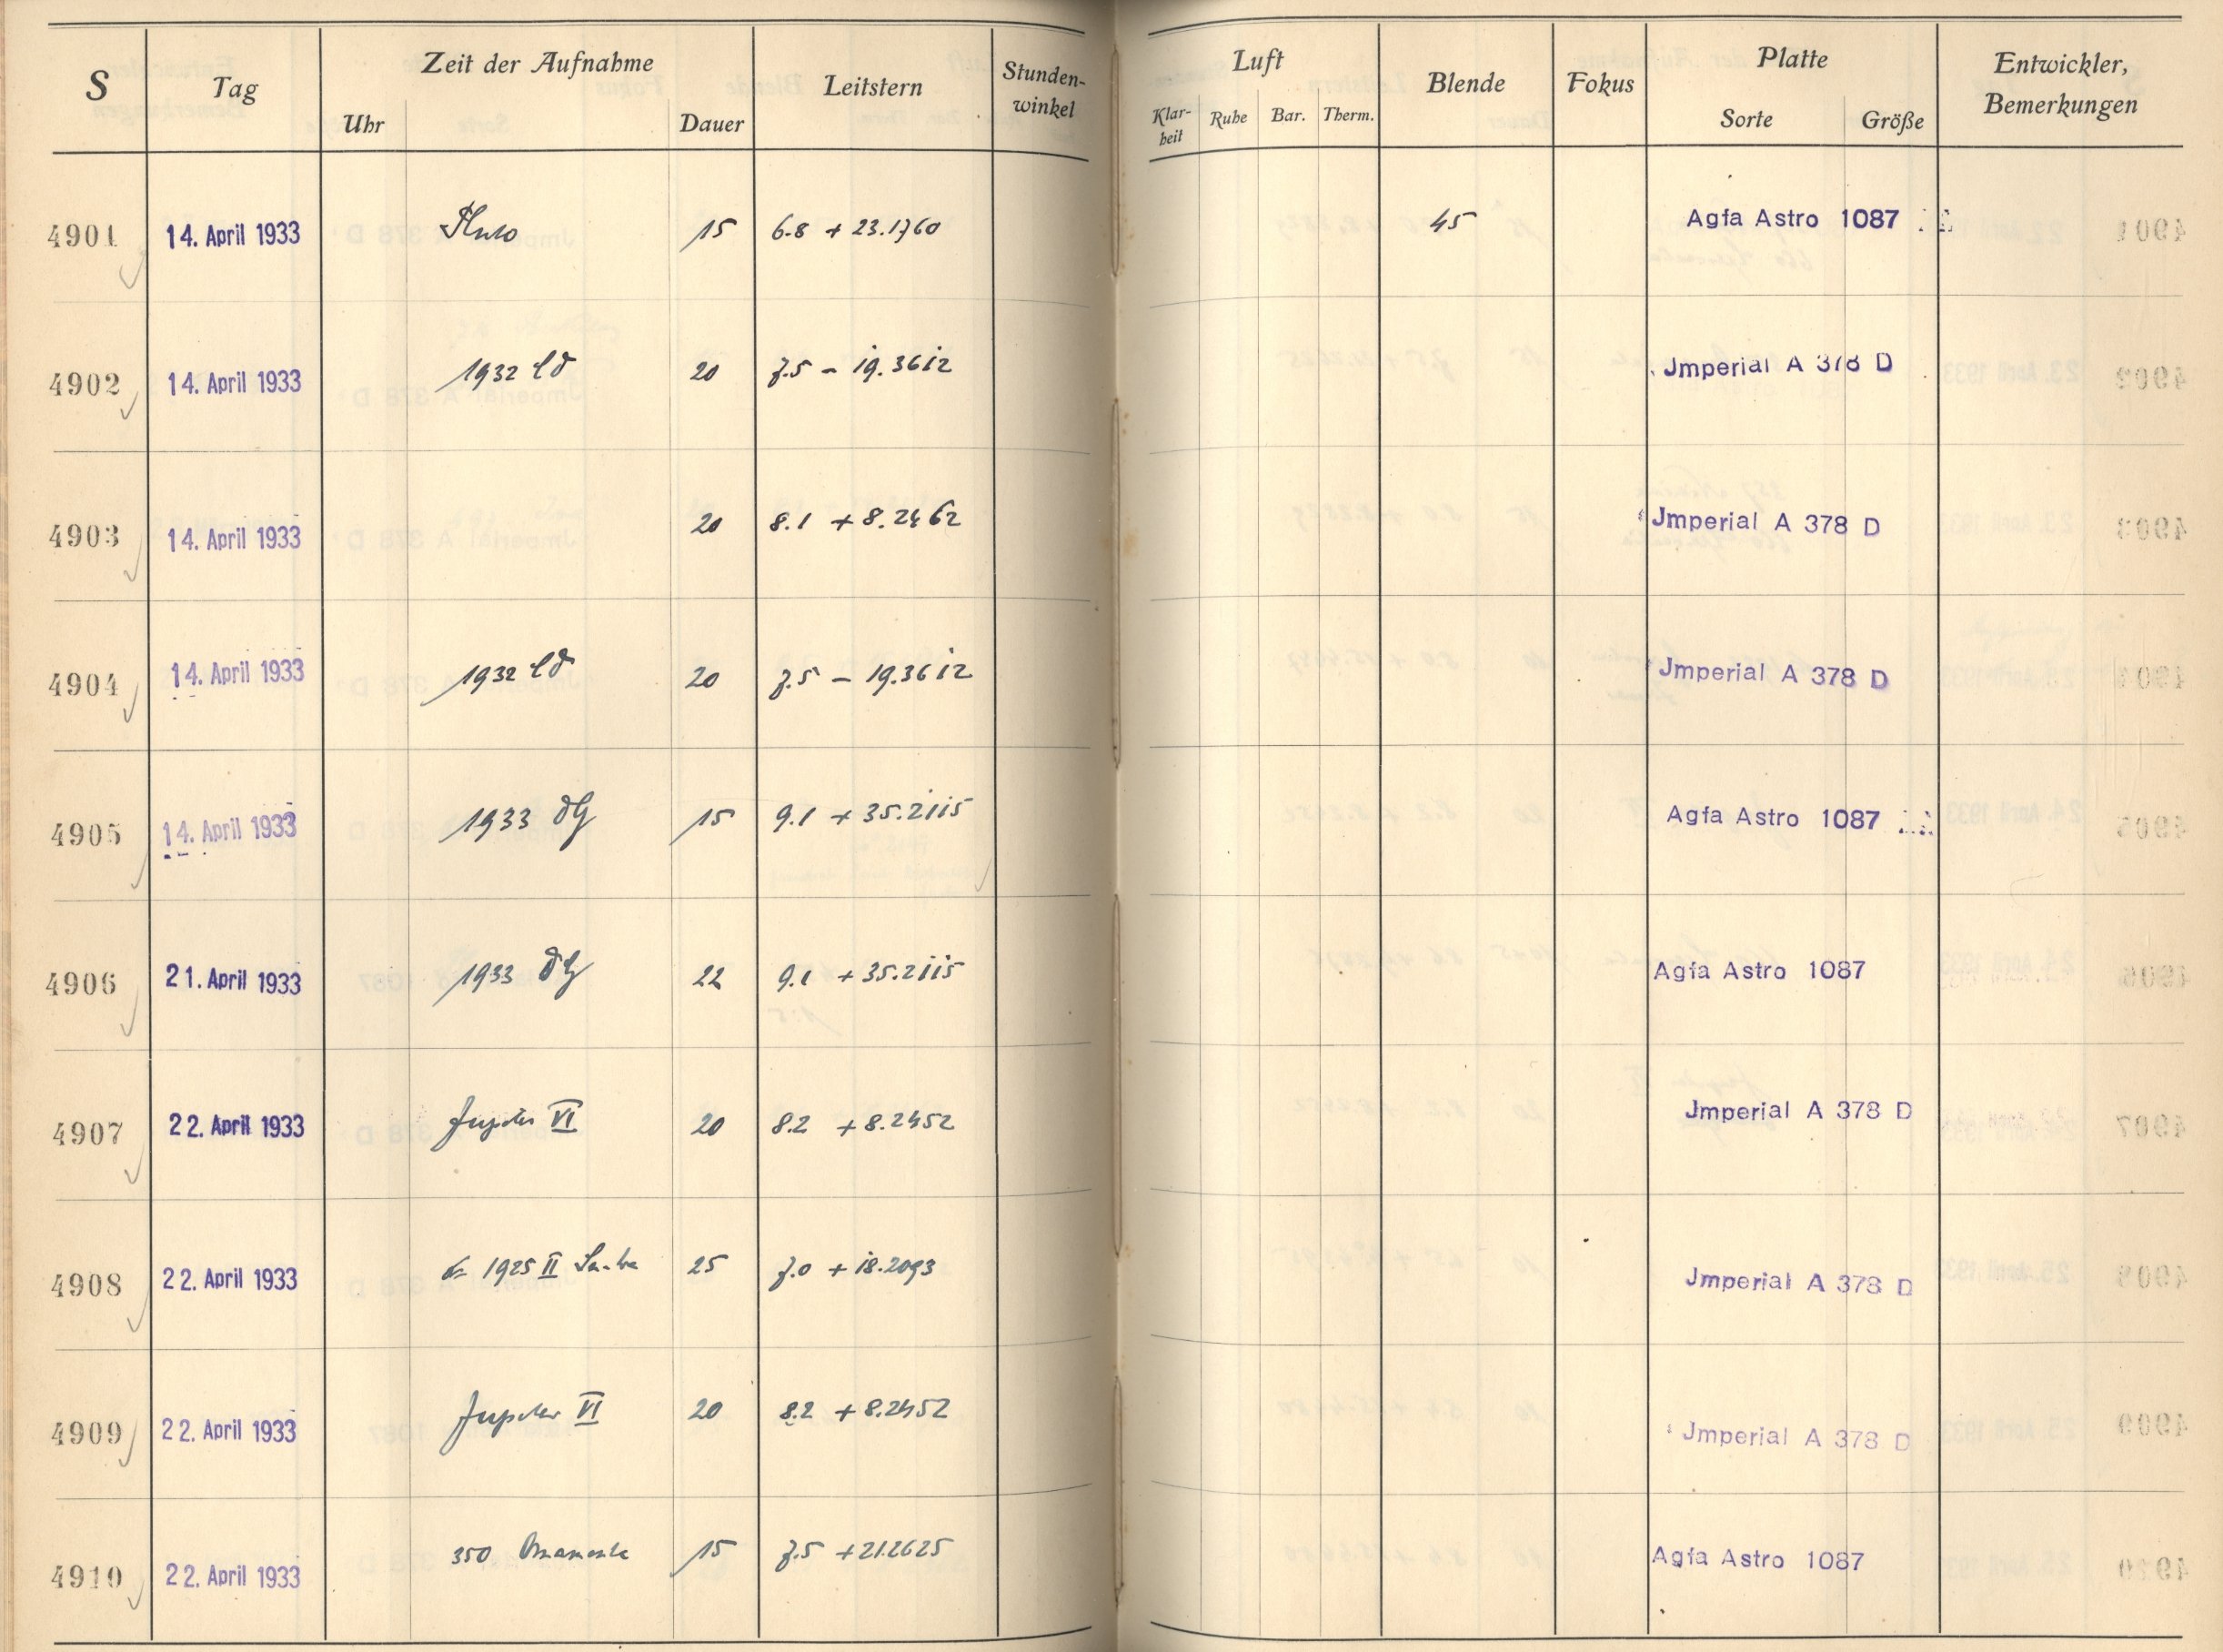 S Tag Zeit der Aufnahme Leitstern Stunden-winkel Luft Blende Fokus Platte Entwickler, Bemerkungen
Uhr Dauer Klar-heit Ruhe Bar. Therm. Sorte Größe
4901 14. April 1933 Pluto 15 6.8 + 23.1760 45 Agfa Astro 1087
4902 14. April 1933 1932 20 7.5 - 19.3612 Jmperial A 378 D
4903 14. April 1933 20 8.1 + 8.2462 Jmperial A 378 D
4904 14. April 1933 1932 20 7.5 - 19.3612 Jmperial A 378 D
4905 14. April 1933 1933 15 9.1 + 35.2115 Agfa Astro 1087
4906 21. April 1933 1933 22 9.1 + 35.2115 Agfa Astro 1087
4907 22. April 1933 Jupiter VI 20 8.2 + 8.2452 Jmperial A 378 D
4908 22. April 1933 1925 II 25 7.0 + 18.2093 Jmperial A 378 D
4909 22. April 1933 Jupiter VI 20 8.2 + 8.2452 Jmperial A 378 D
4910 22. April 1933 350 Ornamenta 15 7.5 + 21.2625 Agfa Astro 1087